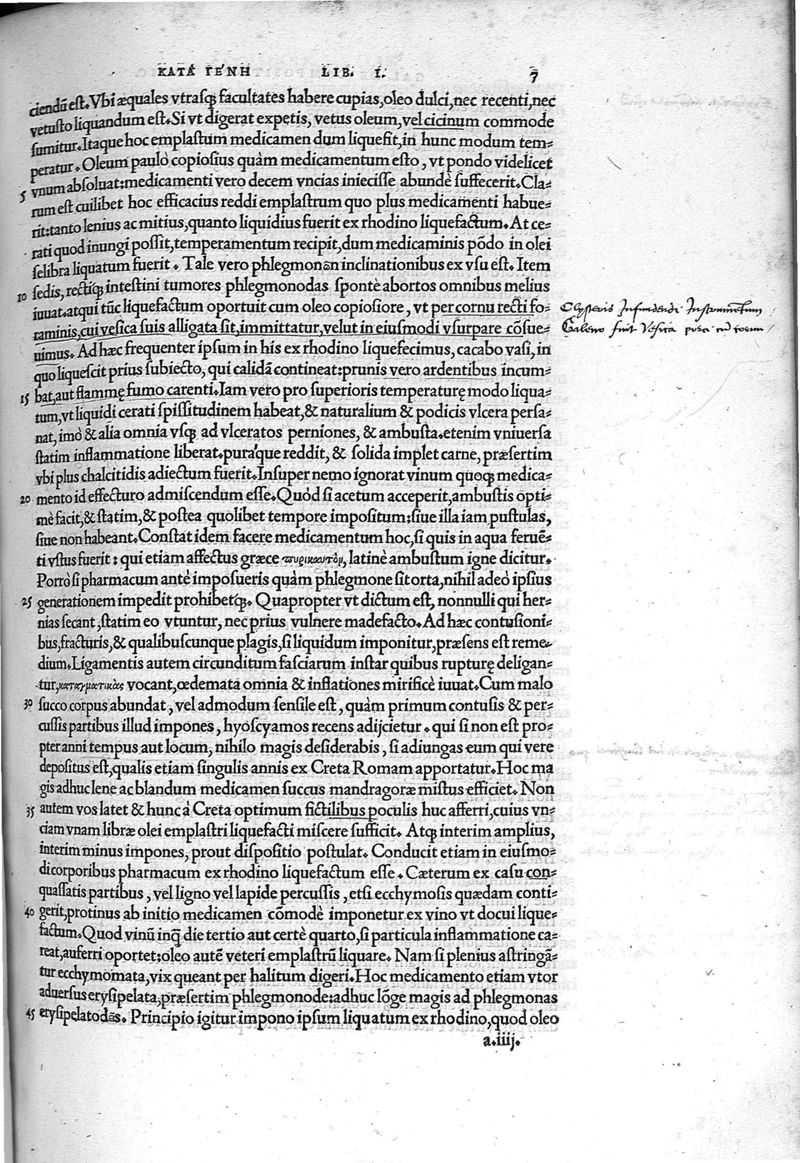 ΚΑΤΑ ΓΕΝΗ LIB. I. 7
ciendū est. Vbi æquales vtrasq; facultates habere cupias, oleo dulci, nec recenti, nec
vetusto liquandum est. Si vt digerat expetis, vetus oleum, vel cicinum commode
sumitur. Itaque hoc emplastum medicamen dum liquefit, in hunc modum tem-
peratur. Oleum paulò copiosius quàm medicamentum esto, vt pondo videlicet
vnum absoluat: medicamenti vero decem vncias iniecisse abundè suffecerit. Cla-
5 rum est cuilibet hoc efficacius reddi emplastrum quo plus medicamenti habue-
rit: tanto lenius ac mitius, quanto liquidius fuerit ex rhodino liquefactum. At ce-
rati quod inungi possit, temperamentum recipit, dum medicaminis pōdo in olei
selibra liquatum fuerit. Tale vero phlegmonōn inclinationibus ex vsu est. Item
sedis, rectiq; intestini tumores phlegmonodas spontè abortos omnibus melius
10 iuuat. atqui tūc liquefactum oportuit cum oleo copiosiore, vt per cornu recti fo-
raminis, cui vesica suis alligata sit, immittatur, velut in eiusmodi vsurpare cōsue-
uimus. Ad hæc frequenter ipsum in his ex rhodino liquefecimus, cacabo vasi, in
quo liquescit prius subiecto, qui calidā contineat: prunis vero ardentibus incum-
15 bat, aut flammę fumo carenti. Iam vero pro superioris temperaturę modo liqua-
tum, vt liquidi cerati spissitudinem habeat, & naturalium & podicis vlcera persa-
nat, imò & alia omnia vsq; ad vlceratos perniones, & ambusta. etenim vniuersa
statim inflammatione liberat. pura'que reddit, & solida implet carne, præsertim
vbi plus chalcitidis adiectum fuerit. Insuper nemo ignorat vinum quoq; medica-
20 mento id effecturo admiscendum esse. Quòd si acetum acceperit, ambustis opti-
mè facit, & statim, & postea quolibet tempore impositum: siue illa iam pustulas,
siue non habeant. Constat idem facere medicamentum hoc, si quis in aqua feruē-
ti vstus fuerit: qui etiam affectus græce πυρίκαυστον, latinè ambustum igne dicitur.
Porrò si pharmacum antè imposueris quàm phlegmone sit orta, nihil adeò ipsius
25 generationem impedit prohibetq;. Quapropter vt dictum est, nonnulli qui her-
nias secant, statim eo vtuntur, nec prius vulnere madefacto. Ad hæc contusioni-
bus, fracturis, & qualibuscunque plagis, si liquidum imponitur, præsens est reme-
dium. Ligamentis autem circunditum fasciarum instar quibus rupturę deligan-
tur, καταγματικὰς vocant, œdemata omnia & inflationes mirificè iuuat. Cum malo
30 succo corpus abundat, vel admodum sensile est, quàm primum contusis & per-
cussis partibus illud impones, hyoscyamos recens adijcietur. qui si non est pro-
pter anni tempus aut locum, nihilo magis desiderabis, si adiungas eum qui vere
depositus est, qualis etiam singulis annis ex Creta Romam apportatur. Hoc ma
gis adhuc lene ac blandum medicamen succus mandragoræ mistus efficiet. Non
35 autem vos latet & hunc à Creta optimum fictilibus poculis huc afferri, cuius vn-
ciam vnam libræ olei emplastri liquefacti miscere sufficit. Atq; interim amplius,
interim minus impones, prout dispositio postulat. Conducit etiam in eiusmo-
di corporibus pharmacum ex rhodino liquefactum esse. Cæterum ex casu con-
quassatis partibus, vel ligno vel lapide percussis, etsi ecchymosis quædam conti-
40 gerit, protinus ab initio medicamen cōmodè imponetur ex vino vt docui lique-
factum. Quod vinū inq; die tertio aut certè quarto, si particula inflammatione ca-
reat, auferri oportet: oleo autē veteri emplastrū liquare. Nam si plenius astringā-
tur ecchymomata, vix queant per halitum digeri. Hoc medicamento etiam vtor
aduersus erysipelata, præsertim phlegmonode: adhuc lōge magis ad phlegmonas
45 erysipelatodās. Principio igitur impono ipsum liquatum ex rhodino, quod oleo
a.iiij.
Clysteris Infundendi Instrumentum
Galeno fuit Vesica